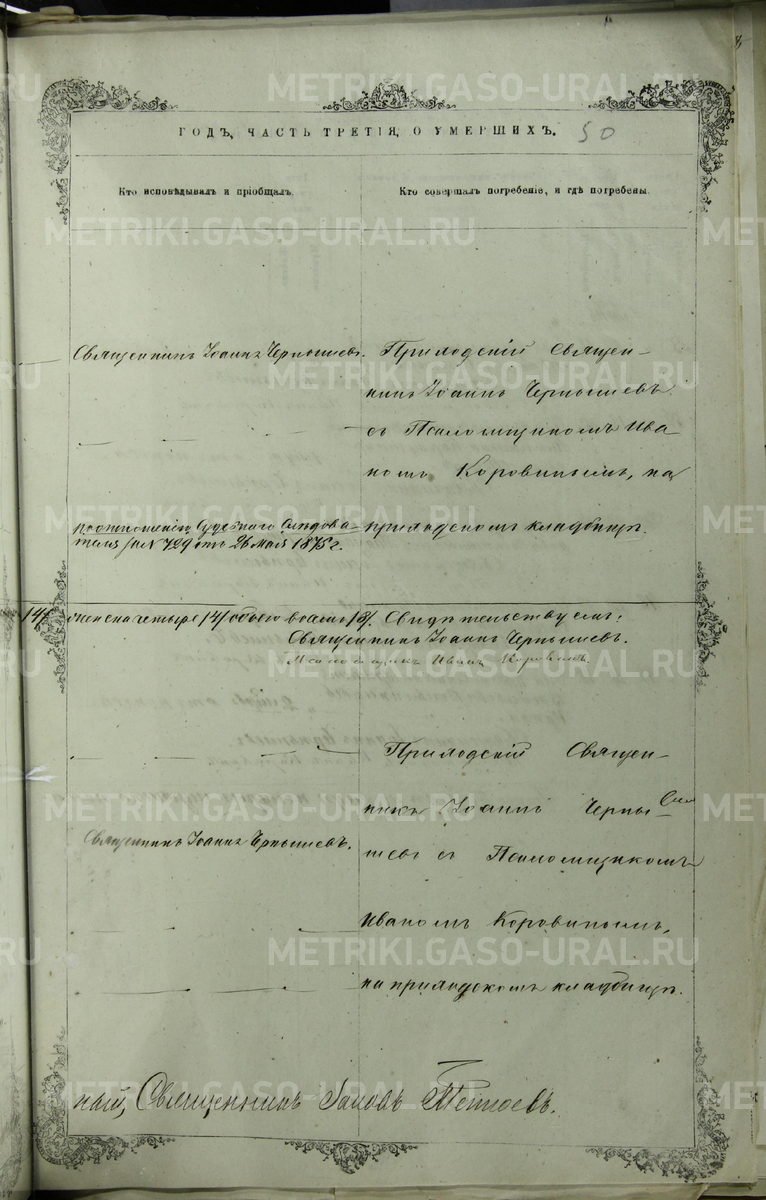 ГОДЪ, ЧАСТЬ ТРЕТІЯ, О УМЕРШИХЪ. 50
Кто исповѣдывалъ и пріобщалъ.
Кто совершалъ погребеніе, и гдѣ погребены.
Священникъ Іоаннъ Чернышевъ.
Приходскій Священ-
никъ Іоаннъ Чернышевъ
съ Псаломщикомъ Ива
номъ Коровинымъ, на
приходскомъ кладбищѣ.
по отношенію Судебнаго Слѣдова-
теля за № 729 отъ 26 Мая 1875 г.
/4/ женска четыре /4/ обоего восемь /8/. Свидѣтельствуемъ:
Священникъ Іоаннъ Чернышевъ.
Псаломщикъ Иванъ Коровинъ.
Приходскій Священ-
никъ Іоаннъ Черны-
шевъ съ Псаломщикомъ
Иваномъ Коровинымъ,
на приходскомъ кладбищѣ.
Священникъ Іоаннъ Чернышевъ.
Священникъ Іаковъ
METRIKI.GASO-URAL.RU